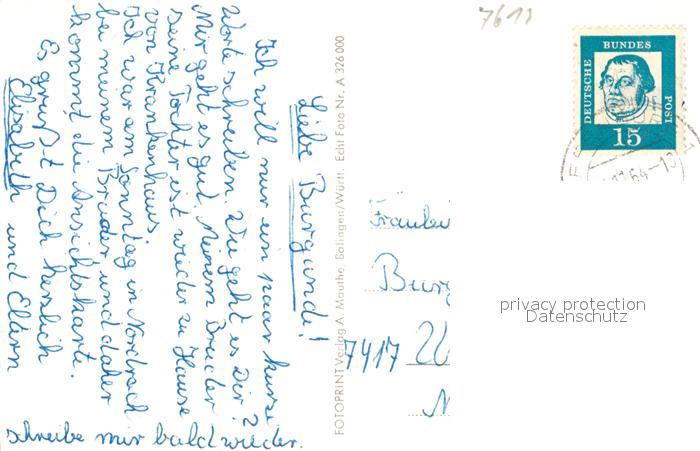 Liebe Burgunde!
Ich will nur ein paar kurze
Worte schreiben. Wie geht es Dir?
Mir geht es gut. Meinem Bruder
seine Tochter ist wieder zu Hause
von Krankenhaus
Ich war am Sonntag in Nordrach
bei meinem Bruder und daher
kommt die Ansichtskarte.
Es grüßt Dich herzlich
Elisabeth und Eltern
schreibe mir bald wieder.
FOTOPRINT Verlag A. Mauthe, Balingen/Württ. Echt Foto Nr. A 326 000
7611
DEUTSCHE
BUNDES
POST
15
64-1
Fräulei
Burg
7417
privacy protection
Datenschutz